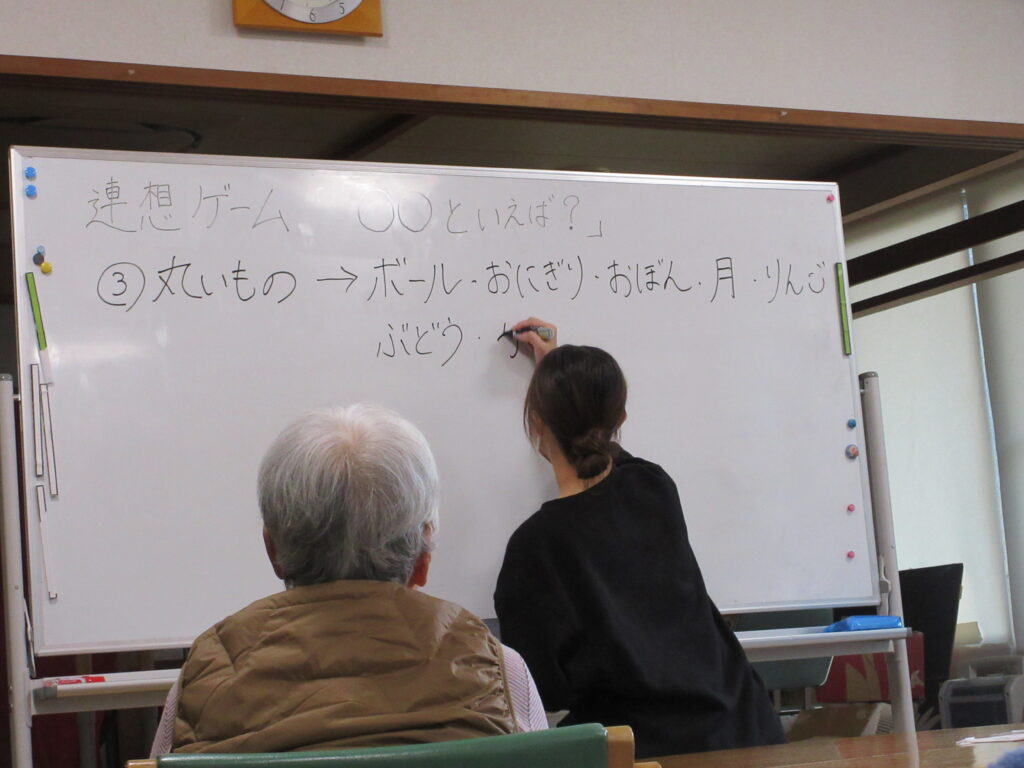 7 6 5
連想ゲーム ○○といえば?」
③丸いもの→ボール・おにぎり・おぼん・月・りんご
ぶどう・